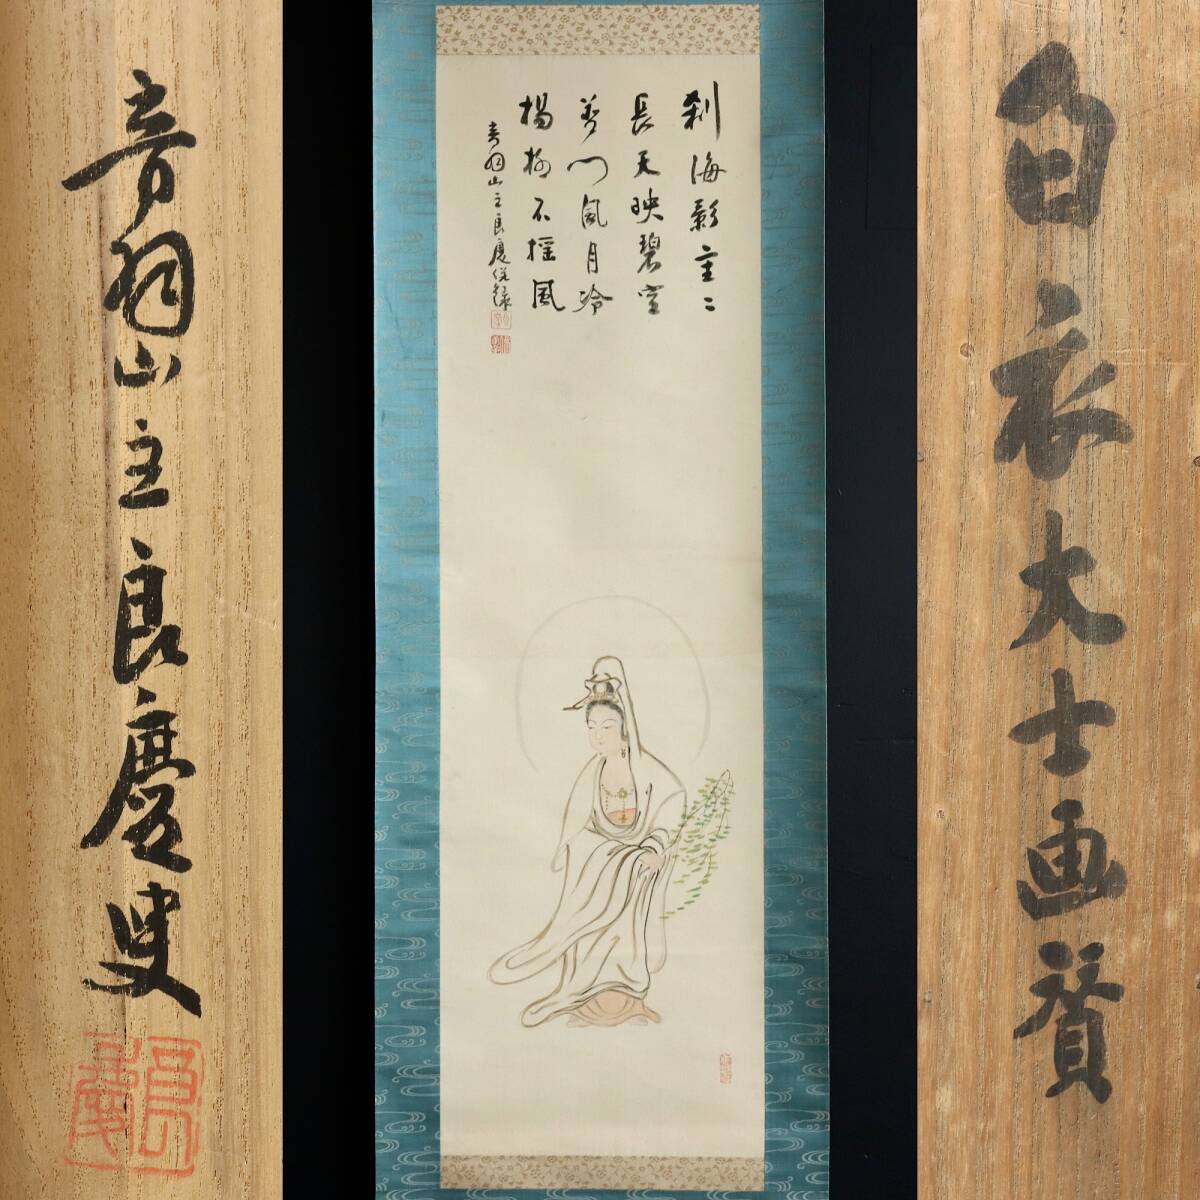 白衣大士画賛
刹海影重々
長天映碧空
普門風月冷
楊柳不揺風
音羽山主良慶併録
音羽山主良慶叟
良慶